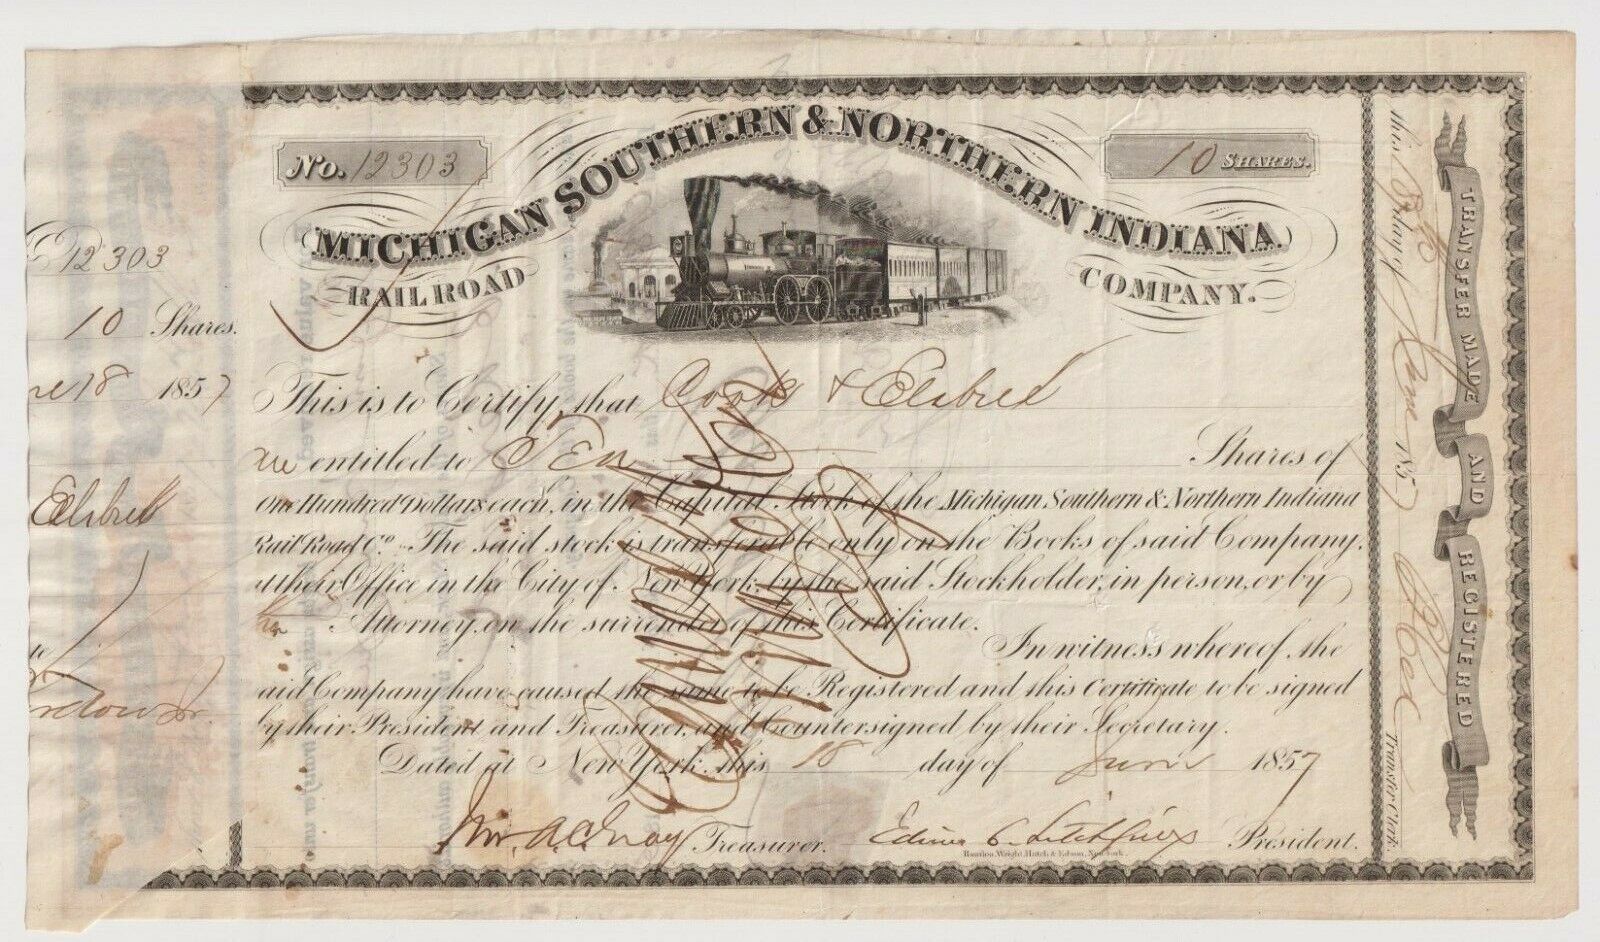 No. 12303
10 SHARES.
MICHIGAN SOUTHERN & NORTHERN INDIANA
RAIL ROAD COMPANY.
12303
10 Shares.
18 1857
This is to Certify, that Cook &
are entitled to Ten Shares of
One Hundred Dollars each, in the Capital Stock of the Michigan Southern & Northern Indiana
Rail Road Co. The said stock is transferable only on the Books of said Company,
at their Office in the City of New York, by the said Stockholder, in person, or by
Attorney, on the surrender of this Certificate.
In witness whereof the
said Company have caused the same to be Registered and this Certificate to be signed
by their President and Treasurer, and Countersigned by their Secretary.
Dated at New York, this 18 day of June 1857
Treasurer.
President.
Rawdon, Wright, Hatch & Edson, New York.
TRANSFER MADE AND REGISTERED
this 18 day of June 1857
Transfer Clerk.